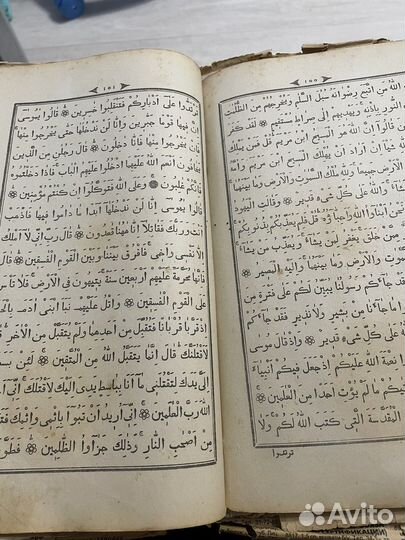 ١٥٥
الله من اتبع رضوانه سبل السلم ويخرجهم من الظلمت
النور باذنه ويهديهم الى صراط مستقيم ۞ لقد كفر
قالوا ان الله هو المسيح ابن مريم قل فمن يملك
ان اراد ان يهلك المسيح ابن مريم وامه
جميعا ولله ملك السموت والارض وما بينهما
يشاء والله على كل شىء قدير ۞ وقالت اليهود
نحن ابنؤا الله واحباؤه قل فلم يعذبكم بذنوبكم
ممن خلق يغفر لمن يشاء ويعذب من يشاء
والارض وما بينهما واليه المصير ۞
جاءكم رسولنا يبين لكم على فترة من
ما جاءنا من بشير ولا نذير فقد جاءكم
على كل شىء قدير ۞ واذ قال موسى
نعمة الله عليكم اذ جعل فيكم انبياء
ما لم يؤت احدا من العلمين ۞
المقدسة التى كتب الله لكم ولا
ترتدوا
ترتدوا على ادباركم فتنقلبوا خسرين ۞ قالوا يموسى
ان فيها قوما جبارين وانا لن ندخلها حتى يخرجوا منها
يخرجوا منها فانا دخلون ۞ قال رجلن من الذين
يخافون انعم الله عليهما ادخلوا عليهم الباب فاذا دخلتموه
فانكم غلبون ۞ وعلى الله فتوكلوا ان كنتم مؤمنين ۞
قالوا يموسى انا لن ندخلها ابدا ما داموا فيها فاذهب
انت وربك فقاتلا انا ههنا قعدون ۞ قال رب انى لا املك
الا نفسى واخى فافرق بيننا وبين القوم الفسقين ۞ قال
فانها محرمة عليهم اربعين سنة يتيهون فى الارض فلا تأس
على القوم الفسقين ۞ واتل عليهم نبا ابنى ادم بالحق
اذ قربا قربانا فتقبل من احدهما ولم يتقبل من الاخر قال
لاقتلنك قال انما يتقبل الله من المتقين ۞ لئن بسطت
الى يدك لتقتلنى ما انا بباسط يدى اليك لاقتلك انى اخاف
الله رب العلمين ۞ انى اريد ان تبوأ باثمى واثمك فتكون
من اصحب النار وذلك جزاؤا الظلمين ۞ فطوعت
Avito